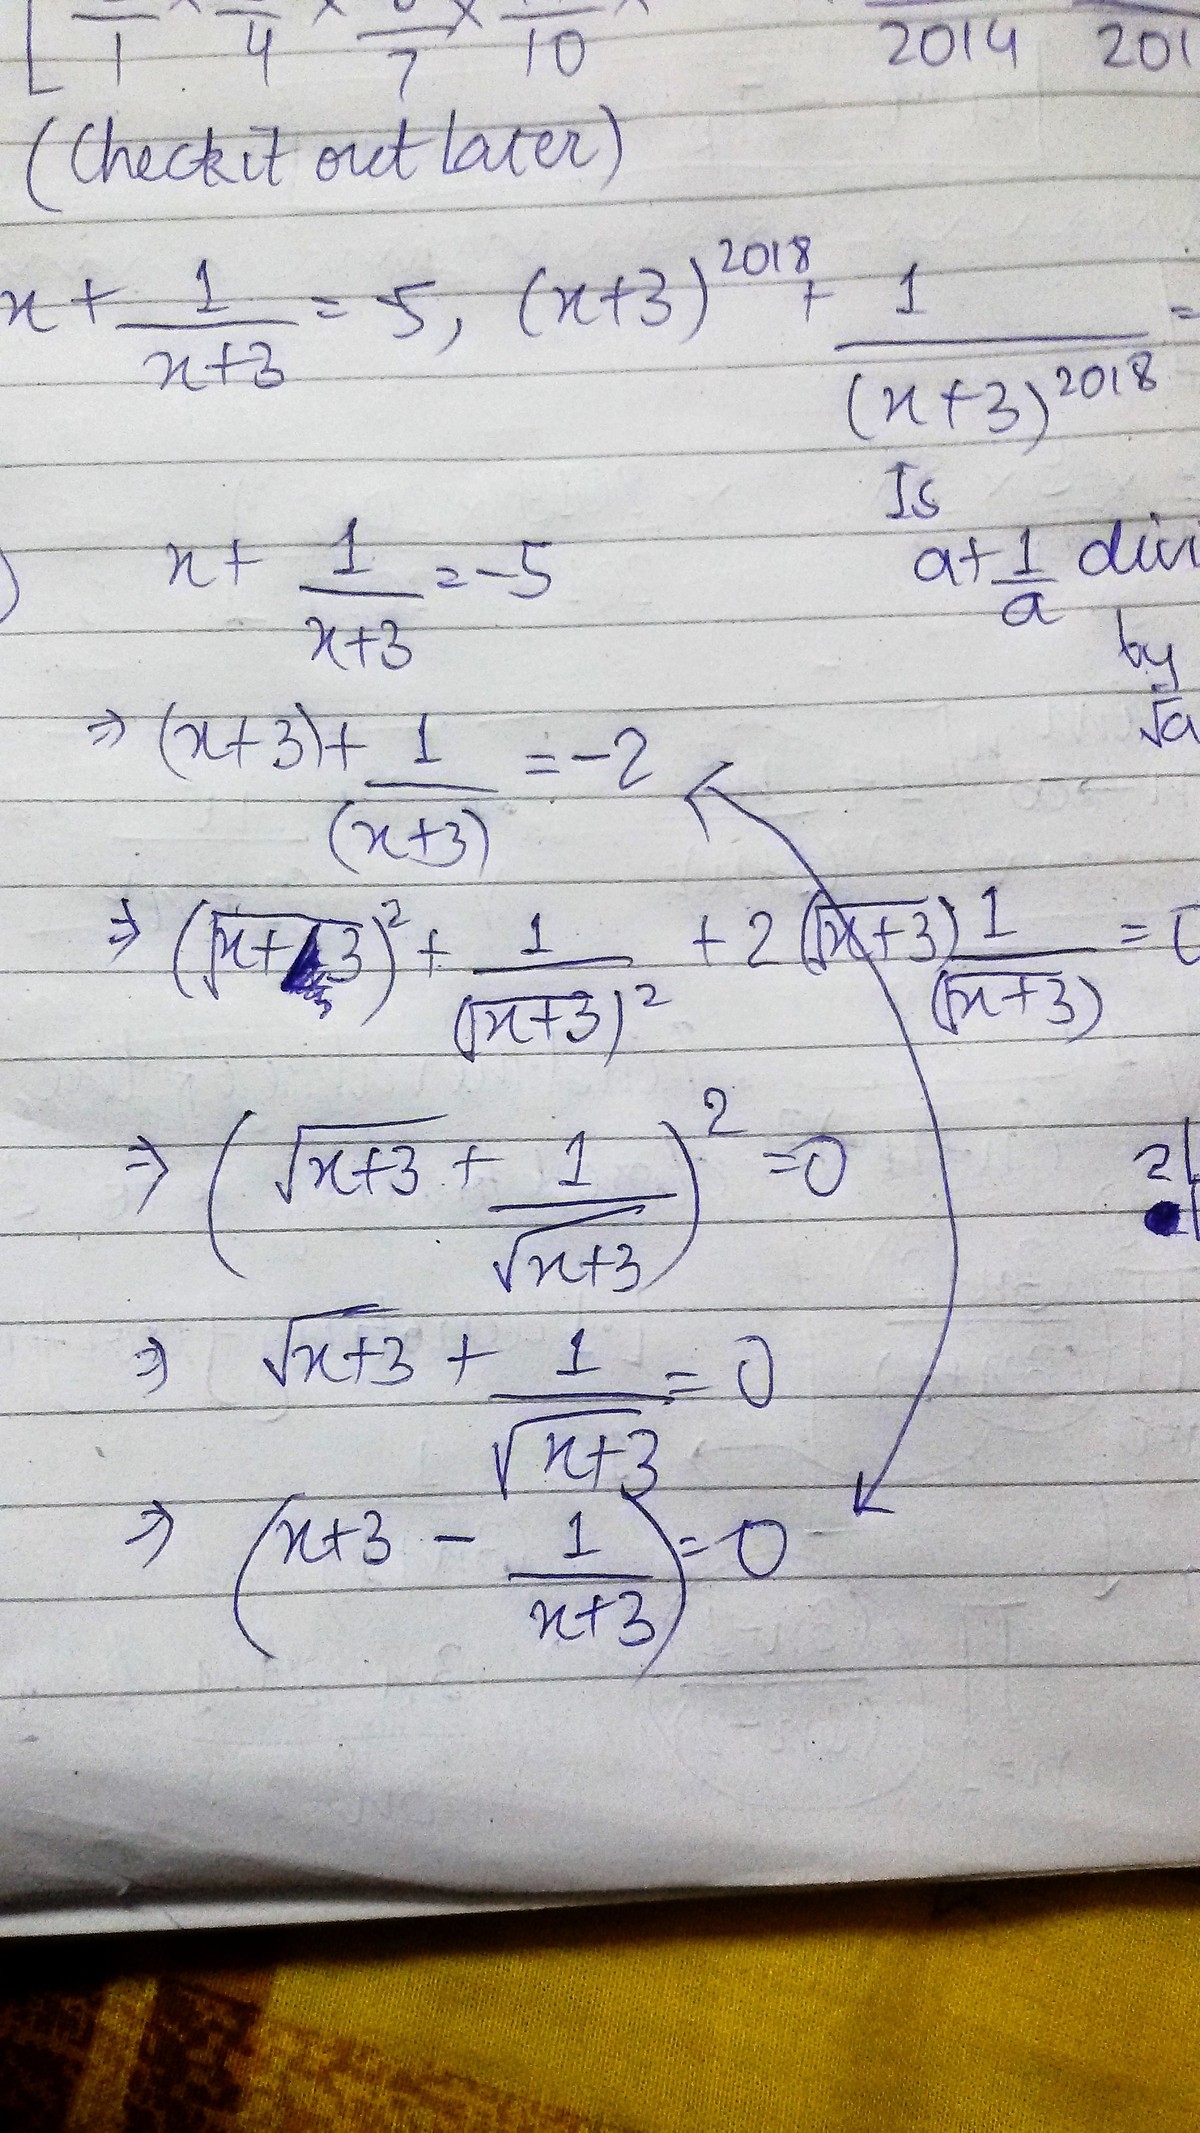 1 × 4 × 7 × 10 × 2014 201
(Check it out Later)
x + 1/(x+3) = -5, (x+3)^2018 + 1/(x+3)^2018 =
Is
a + 1/a divi
by
√a
) x + 1/(x+3) = -5
⇒ (x+3) + 1/(x+3) = -2
⇒ (√x+3)² + 1/(√x+3)² + 2(√x+3) 1/(√x+3) =
⇒ (√x+3 + 1/√x+3)² = 0
⇒ √x+3 + 1/√x+3 = 0
⇒ (x+3 - 1/(x+3)) = 0